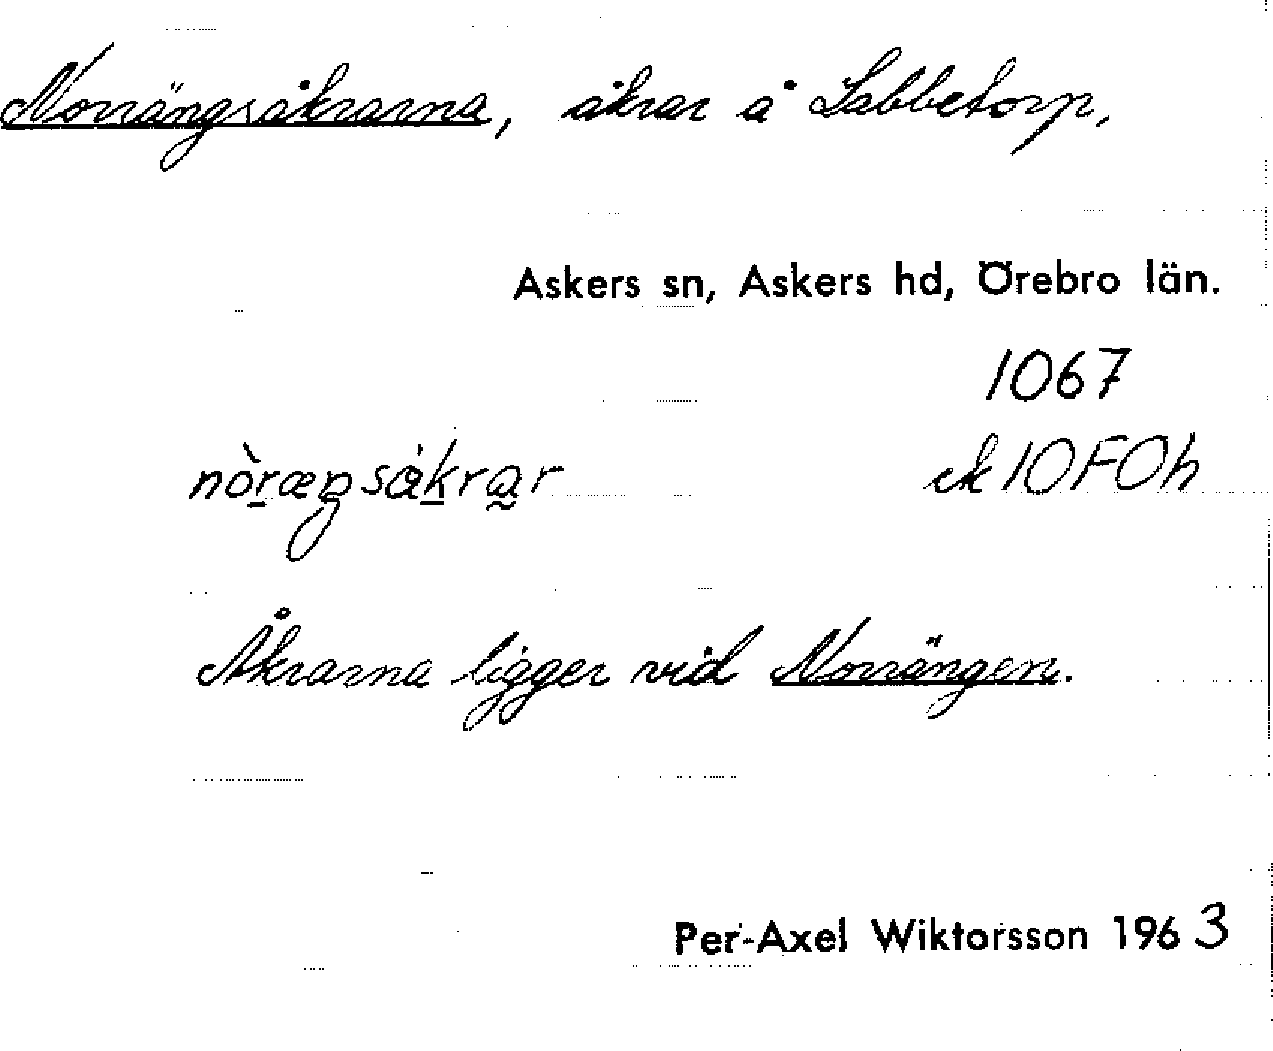 Norrängsåkrarna, åkrar å Labbetorp,
Askers sn, Askers hd, Örebro län.
1067
nòræŋsåkrar ek 10F0h
Åkrarna ligger vid Norrängen.
Per-Axel Wiktorsson 1963